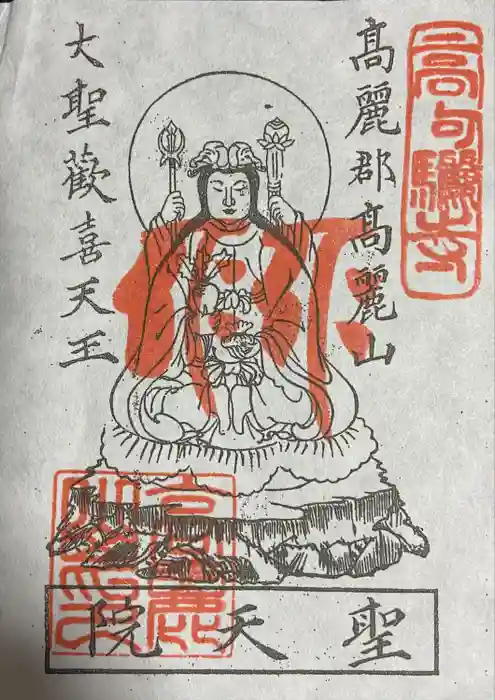 高句驪寺
髙麗郡髙麗山
大聖歡喜天王
聖天院